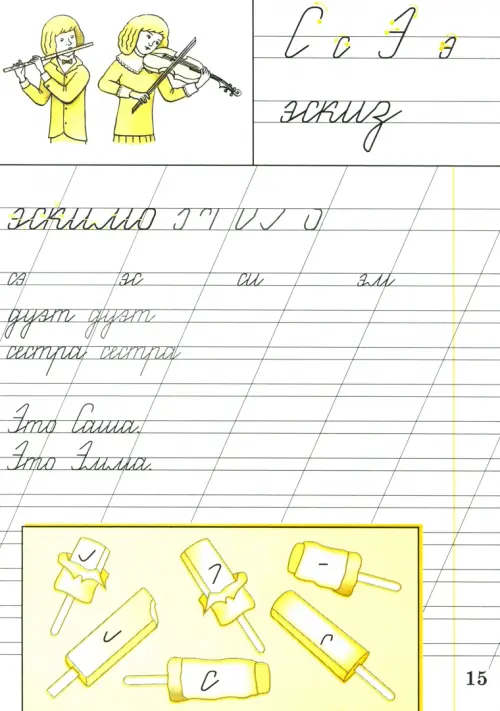 С с Э э
эскиз
эскимо
сэ эс си эли
дуэт дуэт
сестра сестра
Это Саша.
Это Эмма.
15